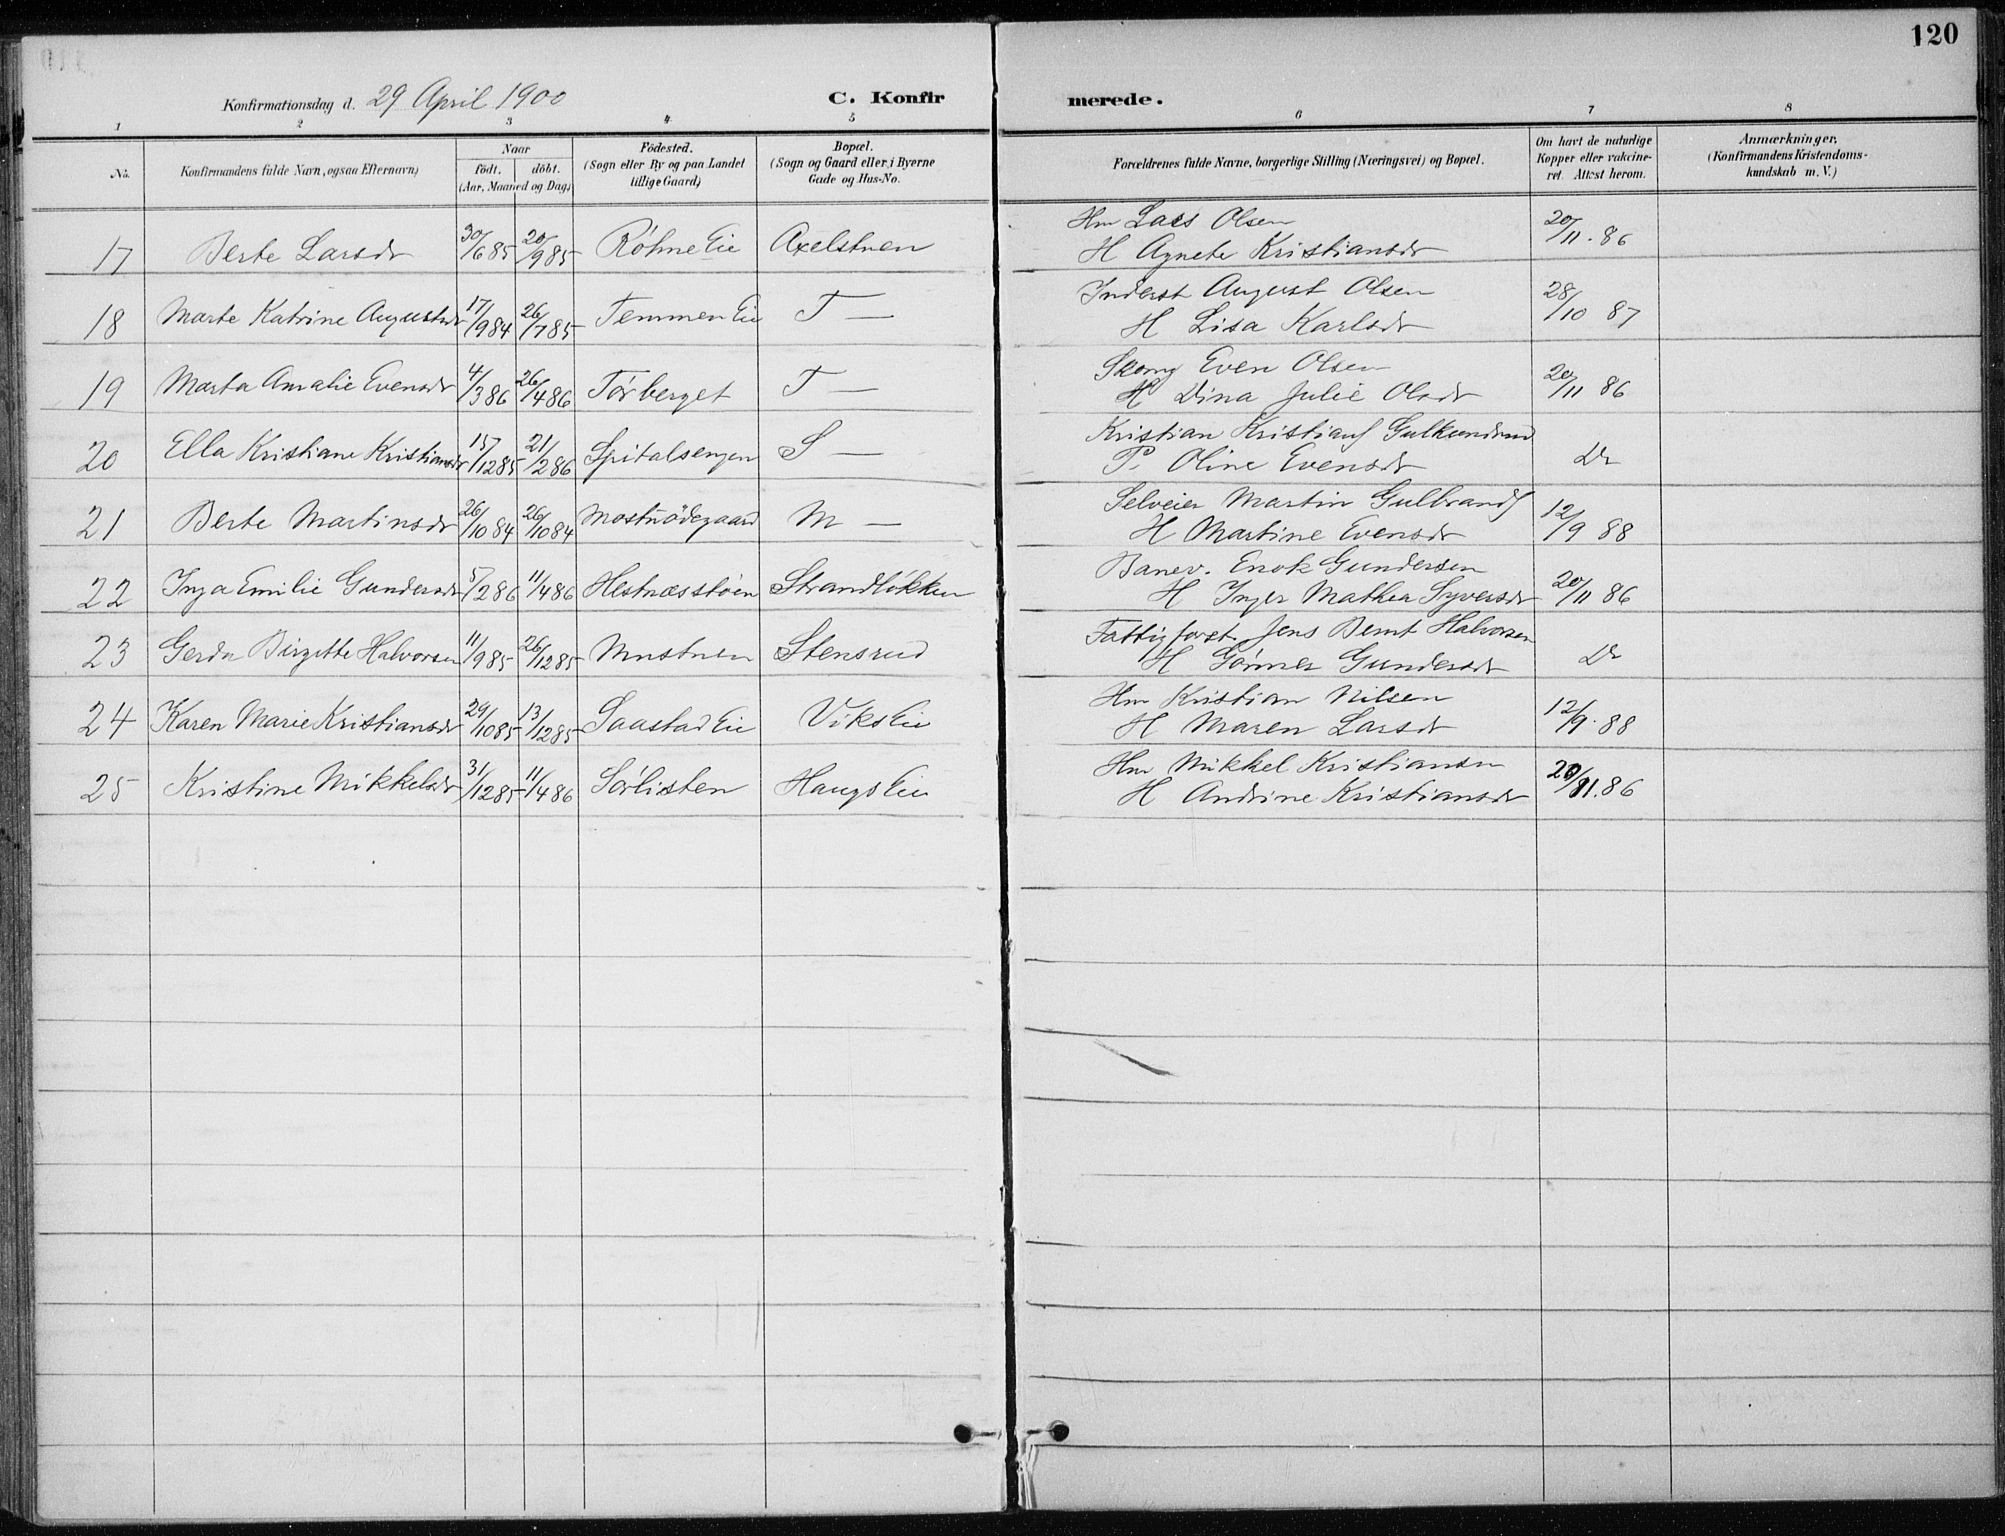 120
Konfirmationsdag d. 29 April 1900 C. Konfirmerede.
1 2 3 4 5 6 7 8
No. Konfirmandens fulde Navn, ogsaa Efternavn) Naar födt. döbt. (Aar, Maaned og Dag) Födested. (Sogn eller By og paa Landet tillige Gaard) Bopæl. (Sogn og Gaard eller i Byerne Gade og Hus-No. Forældrenes fulde Navne, borgerlige Stilling (Næringsvei) og Bopæl. Om havt de naturlige Kopper eller vakcineret. Attest herom. Anmærkninger. (Konfirmandens Kristendomskundskab m. V.)
Hm Lars Olsen
17 Berte Larsdr 30/6 85 20/9 85 Röhne Eie Axelstuen H Agnete Kristiansdr 20/11. 86
Inderst August Olsen
18 Marte Katrine Augustsdr 17/9 84 26/7 85 Temmen Eie T — H Lisa Karlsdr 28/10 87
Skomg Even Olsen
19 Marta Amalie Evensdr 4/3 86 26/4 86 Törberget T — H Dina Julie Olsdr 20/11 86
Kristian Kristians
20 Ella Kristiane Kristiansdr 15/12 85 21/2 86 Spitalsengen S — P. Oline Evensdr Do
Selveier Martin Gulbrands
21 Berte Martinsdr 26/10 84 26/10 84 Mostuödegaard M — H Martine Evensdr 12/9 88
Banev. Enok Gundersen
22 Inga Emilie Gundersdr 5/2 86 11/4 86 Hestnæsstöen Strandlökken H Inger Mathea Syversdr 20/11 86
Fattigforst. Jens Bernt Halvorsen
23 Gerda Birgitte Halvorsen 11/9 85 26/12 85 Mustuen Stensrud H Gönner Gundersdr Do
Hm Kristian Nilsen
24 Karen Marie Kristiansdr 29/10 85 13/12 85 Saastad Eie Viks Eie H Maren Larsdr 12/9. 88
Hm Mikkel Kristiansen
25 Kristine Mikkelsdr 31/12 85 11/4 86 Sörlisten Haugs Eie H Andrine Kristiansdr 20/11. 86